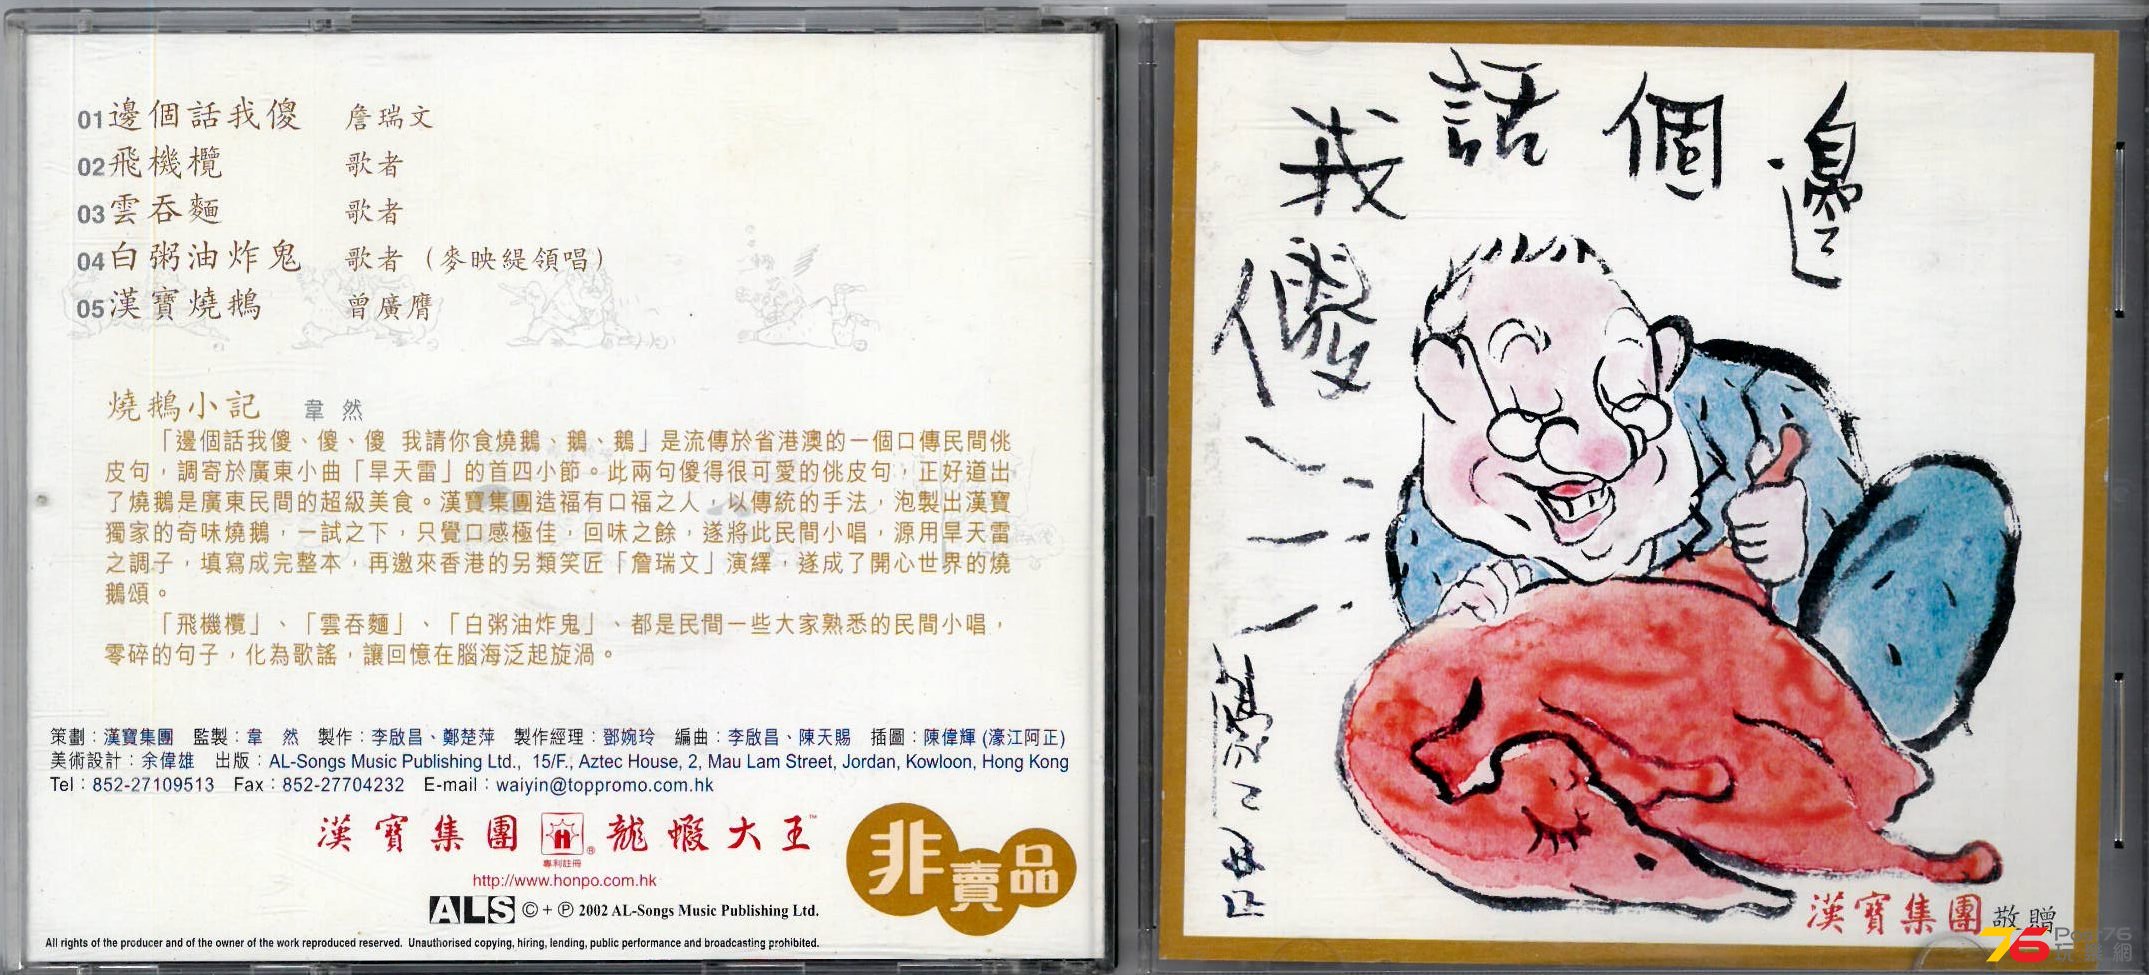 01 邊個話我傻 詹瑞文
02 飛機欖 歌者
03 雲吞麵 歌者
04 白粥油炸鬼 歌者（麥映緹領唱）
05 漢寶燒鵝 曾廣膺
燒鵝小記 韋 然
「邊個話我傻、傻、傻 我請你食燒鵝、鵝、鵝」是流傳於省港澳的一個口傳民間佻
皮句，調寄於廣東小曲「旱天雷」的首四小節。此兩句傻得很可愛的佻皮句，正好道出
了燒鵝是廣東民間的超級美食。漢寶集團造福有口福之人，以傳統的手法，泡製出漢寶
獨家的奇味燒鵝，一試之下，只覺口感極佳，回味之餘，遂將此民間小唱，源用旱天雷
之調子，填寫成完整本，再邀來香港的另類笑匠「詹瑞文」演繹，遂成了開心世界的燒
鵝頌。
「飛機欖」、「雲吞麵」、「白粥油炸鬼」、都是民間一些大家熟悉的民間小唱，
零碎的句子，化為歌謠，讓回憶在腦海泛起旋渦。
策劃：漢寶集團 監製：韋 然 製作：李啟昌、鄭楚萍 製作經理：鄧婉玲 編曲：李啟昌、陳天賜 插圖：陳偉輝 (濠江阿正)
美術設計：余偉雄 出版：AL-Songs Music Publishing Ltd., 15/F., Aztec House, 2, Mau Lam Street, Jordan, Kowloon, Hong Kong
Tel：852-27109513 Fax：852-27704232 E-mail：waiyin@toppromo.com.hk
漢寶集團 H ® 龍蝦大王™
專利註冊
http://www.honpo.com.hk
非賣品
ALS © + ℗ 2002 AL-Songs Music Publishing Ltd.
All rights of the producer and of the owner of the work reproduced reserved. Unauthorised copying, hiring, lending, public performance and broadcasting prohibited.
邊個話我
傻
漢寶集團 敬贈
76 Post76
玩樂網